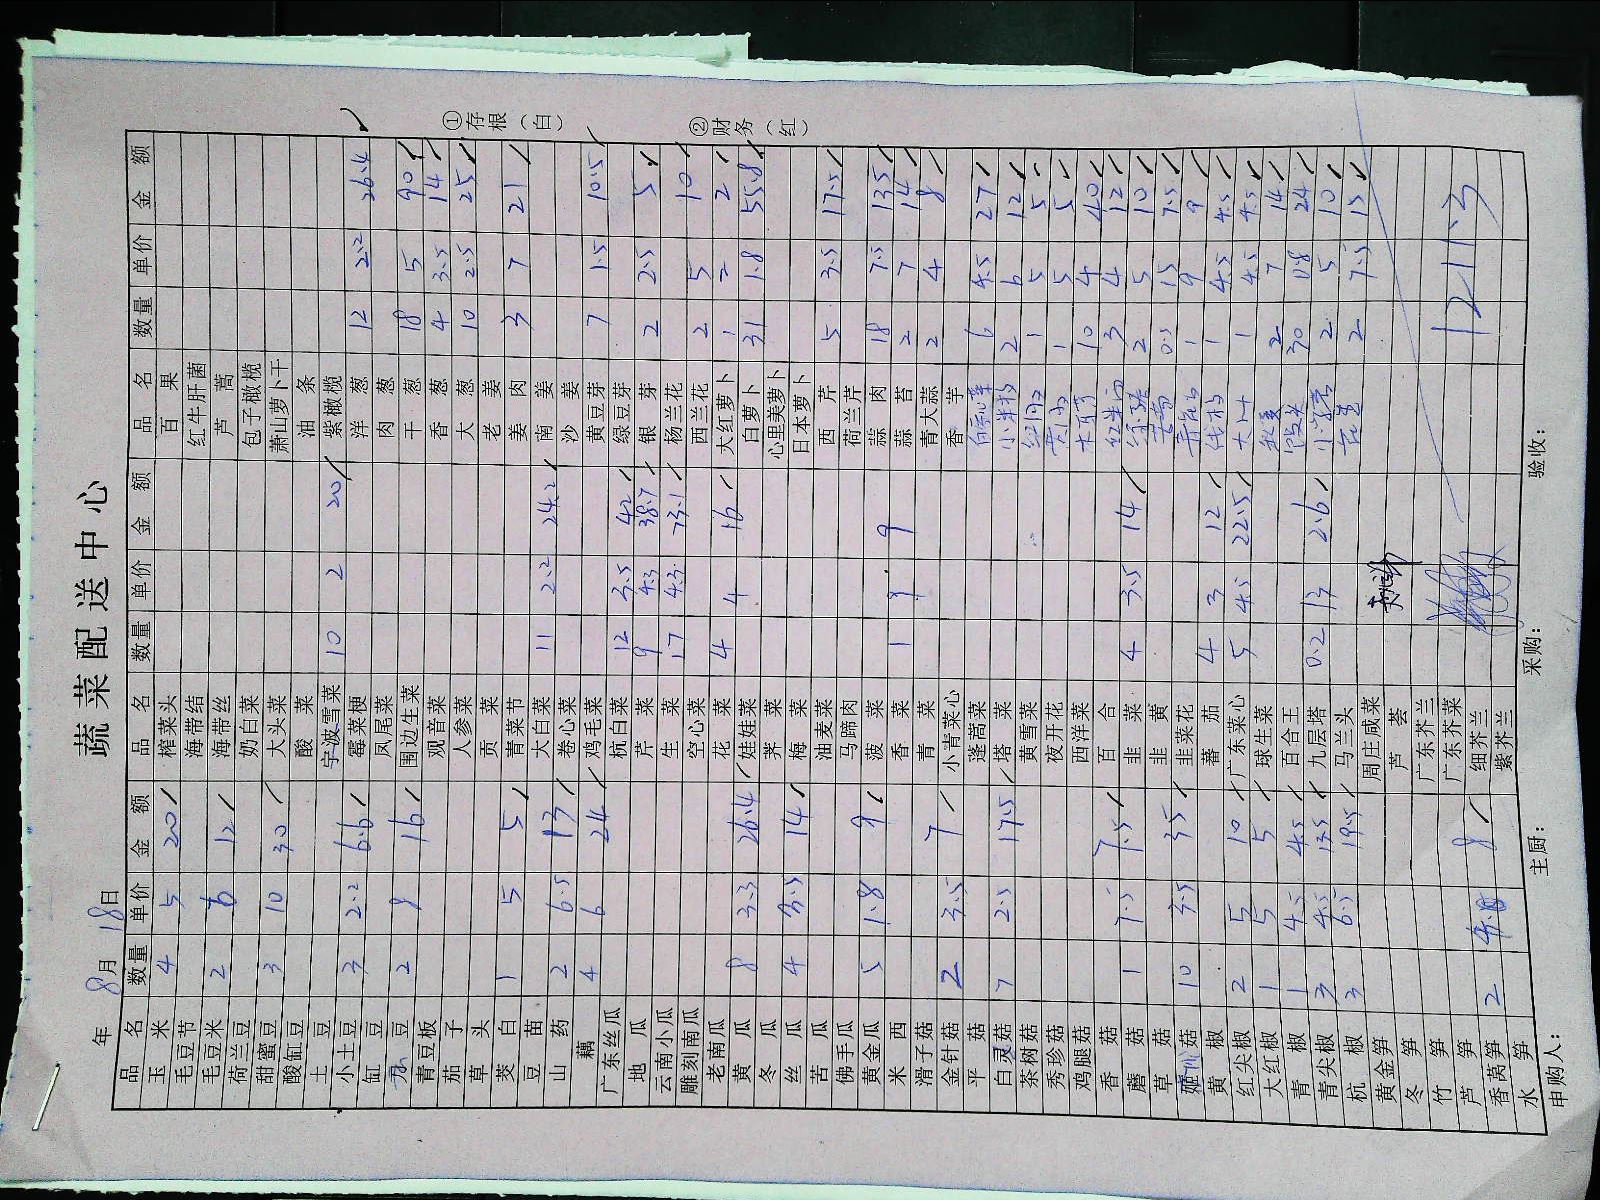 蔬菜配送中心
年 8月 18日
品名 数量 单价 金额 品名 数量 单价 金额 品名 数量 单价 金额
玉米 4 5 20 榨菜头 百果
毛豆节 海带结 红牛肝菌
毛豆米 2 6 12 海带丝 芦蒿
荷兰豆 奶白菜 包子橄榄
甜蜜豆 3 10 30 大头菜 萧山萝卜干
酸缸豆 酸菜 油条
土豆 宁波雪菜 10 2 20 紫橄榄
小土豆 3 2.2 6.6 霉菜梗 洋葱 12 2.2 26.4
缸豆 凤尾菜 肉葱
刀豆 2 8 16 围边生菜 干葱 18 5 90
青豆板 观音菜 香葱 4 3.5 14
茄子 人参菜 大葱 10 2.5 25
草头 贡菜 老姜
茭白 1 5 5 青菜节 姜肉 3 7 21
豆苗 大白菜 11 2.2 24.2 南姜
山药 2 6.5 13 卷心菜 沙姜
藕 4 6 24 鸡毛菜 黄豆芽 7 1.5 10.5
广东丝瓜 杭白菜 12 3.5 42 绿豆芽
地瓜 芹菜 9 4.3 38.7 银芽 2 2.5 5
云南小瓜 生菜 17 4.3 73.1 杨兰花
雕刻南瓜 空心菜 西兰花 2 5 10
老南瓜 花菜 4 4 16 大红萝卜 1 2 2
黄瓜 8 3.3 26.4 娃娃菜 白萝卜 31 1.8 55.8
冬瓜 荠菜 心里美萝卜
丝瓜 4 3.5 14 梅菜 日本萝卜
苦瓜 油麦菜 西芹 5 3.5 17.5
佛手瓜 马蹄肉 荷兰芹
黄金瓜 5 1.8 9 菠菜 蒜肉 18 7.5 135
米西 香菜 1 9 9 蒜苔 2 7 14
滑子菇 青菜 青大蒜 2 4 8
金针菇 2 3.5 7 小青菜心 香芋
平菇 蓬蒿菜 6 4.5 27
白灵菇 7 2.5 17.5 塔菜 小米椒 2 6 12
茶树菇 黄雪菜 1 5 5
秀珍菇 夜开花 1 5 5
鸡腿菇 西洋菜 10 4 40
香菇 百合 3 4 12
蘑菇 1 7.5 7.5 韭菜 4 3.5 14 2 5 10
草菇 韭黄 0.5 15 7.5
姬菇 10 3.5 35 韭菜花 1 9 9
黄椒 蕃茄 4 3 12 线椒 1 4.5 4.5
红尖椒 2 5 10 广东菜心 5 4.5 22.5 大叶 1 4.5 4.5
大红椒 1 5 5 球生菜 2 7 14
青椒 1 4.5 4.5 百合王 30 0.8 24
青尖椒 3 4.5 13.5 九层塔 0.2 13 2.6 2 5 10
杭椒 3 6.5 19.5 马兰头 2 7.5 15
黄金笋 周庄咸菜
冬笋 芦荟
竹笋 广东芥兰
芦笋 广东芥菜 1211.3
香莴笋 2 4 8 细芥兰
水笋 紫芥兰
申购人： 主厨： 采购： 验收：
①存根（白）
②财务（红）